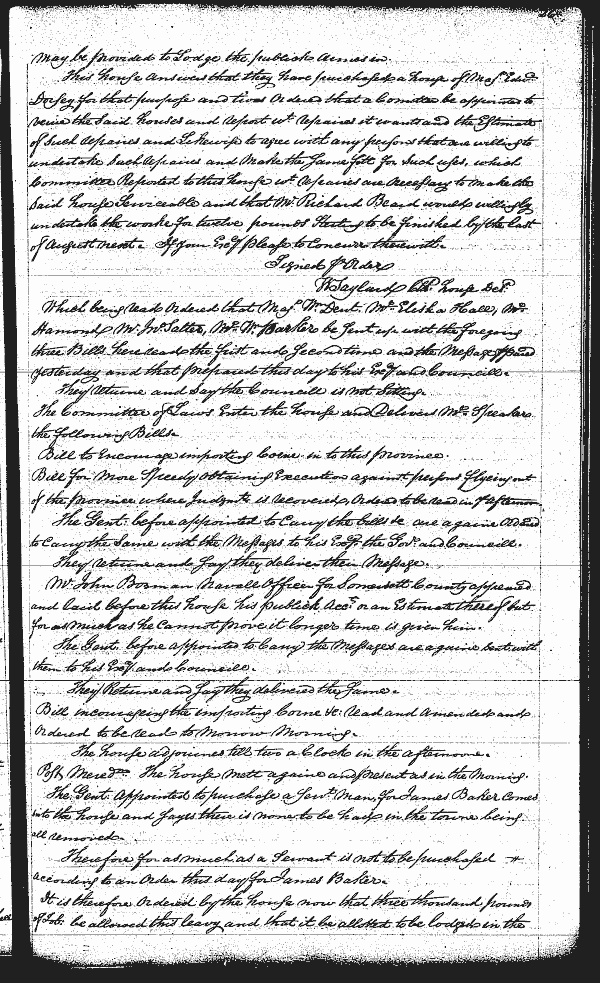 may be provided to Lodge the publick Armes in
This house Answers that they have purchased a house of Majr Edwd
Dorsey for that purpose and two Ordered that a Comittee be appointed to
veiw the said houses and report wt repaires it wants and the Estimate
of Such repaires and Likewise to agree with any persons that are willing to
undertake Such repaires and Make the Same fitt for Such uses, which
Committee Reported to this house wt repaires are necessary to make the
Said house Serviceable and that Mr Richard Beard would willingly
undertake the worke for twelve pounds Sterling to be finished by the last
of August next. If your Exy please to Concurr therewith.
Signed p Order
W Taylard Clk house Del.
Which being read Ordered that Majr Wm Dent Mr Elisha Hall, Mr
Hamond, Mr Jno Salter, Mr Wm Barker be Sent up with the foregoing
three Bills here read the first and Second time and the Message
yesterday and that prepared this day to his Exy and Councill.
They returne and Say the Councill is not Sitting.
The Committee of Laws Enter the house and Delivers Mr Speaker
the following Bills.
Bill to Encourage importing Corne in to this province.
Bill for More Speedy obtaining Execution against persons flyeing out
of the province where Judgmt is recovered, Ordered to be read in ye afternoon
The Gent. before appointed to Carry the bills &c are againe Ordered
to Carry the Same with the Messages to his Exy the Govr and Councill.
They returne and Say they deliver their Message.
Mr John Bozman Navall Officer for Somersett County appeared
and laid before this house his publick Acct or an Estimate thereof but
for as much as he Cannot prove it longer time is given him.
The Gent. before appointed to Carry the Messages are againe sent with
them to his Exy and Councill.
They Returne and Say they delivered the Same.
Bill incourageing the importing Corne &c: read and amended and
Ordered to be read to Morrow Morning.
The house adjournes till two a Clock in the afternoone.
Post Merid The house mett againe and present as in the Morning.
The Gent. Appointed to purchase a Servt Man, for James Baker Comes
into the house and Sayes there is none to be had in the towne being
all removed.
Therefore for as much as a Servant is not to be purchased
according to an Order this day for James Baker.
It is therefore Ordered by the house now that three thousand pounds
of Tob. be allowed this leavy and that it be allotted to be lodged in the